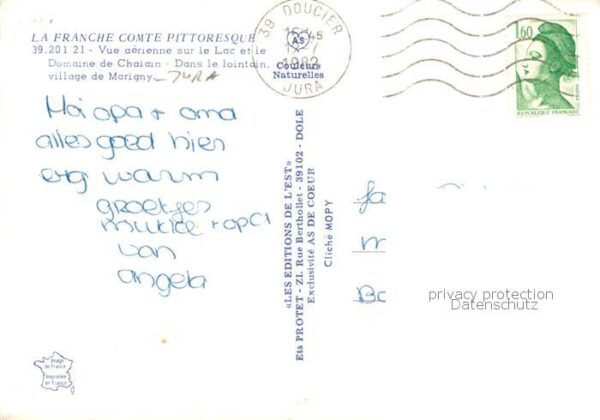 LA FRANCHE COMTE PITTORESQUE
39.201 21 - Vue aérienne sur le Lac et le
Domaine de Chalain - Dans le lointain,
village de Marigny JURA
AS
Couleurs
Naturelles
39 DOUCIER
16 45
1982
JURA
1,60
REPUBLIQUE FRANÇAISE
Hoi opa + oma
alles goed hier
erg warm
groetjes
van
angela
«LES EDITIONS DE L'EST»
Ets PROTET - ZI. Rue Berthollet - 39102 - DOLE
Exclusivité AS DE COEUR
Cliché MOPY
fa
m
Bc
privacy protection
Datenschutz
Image
de France
Imprimée
en France